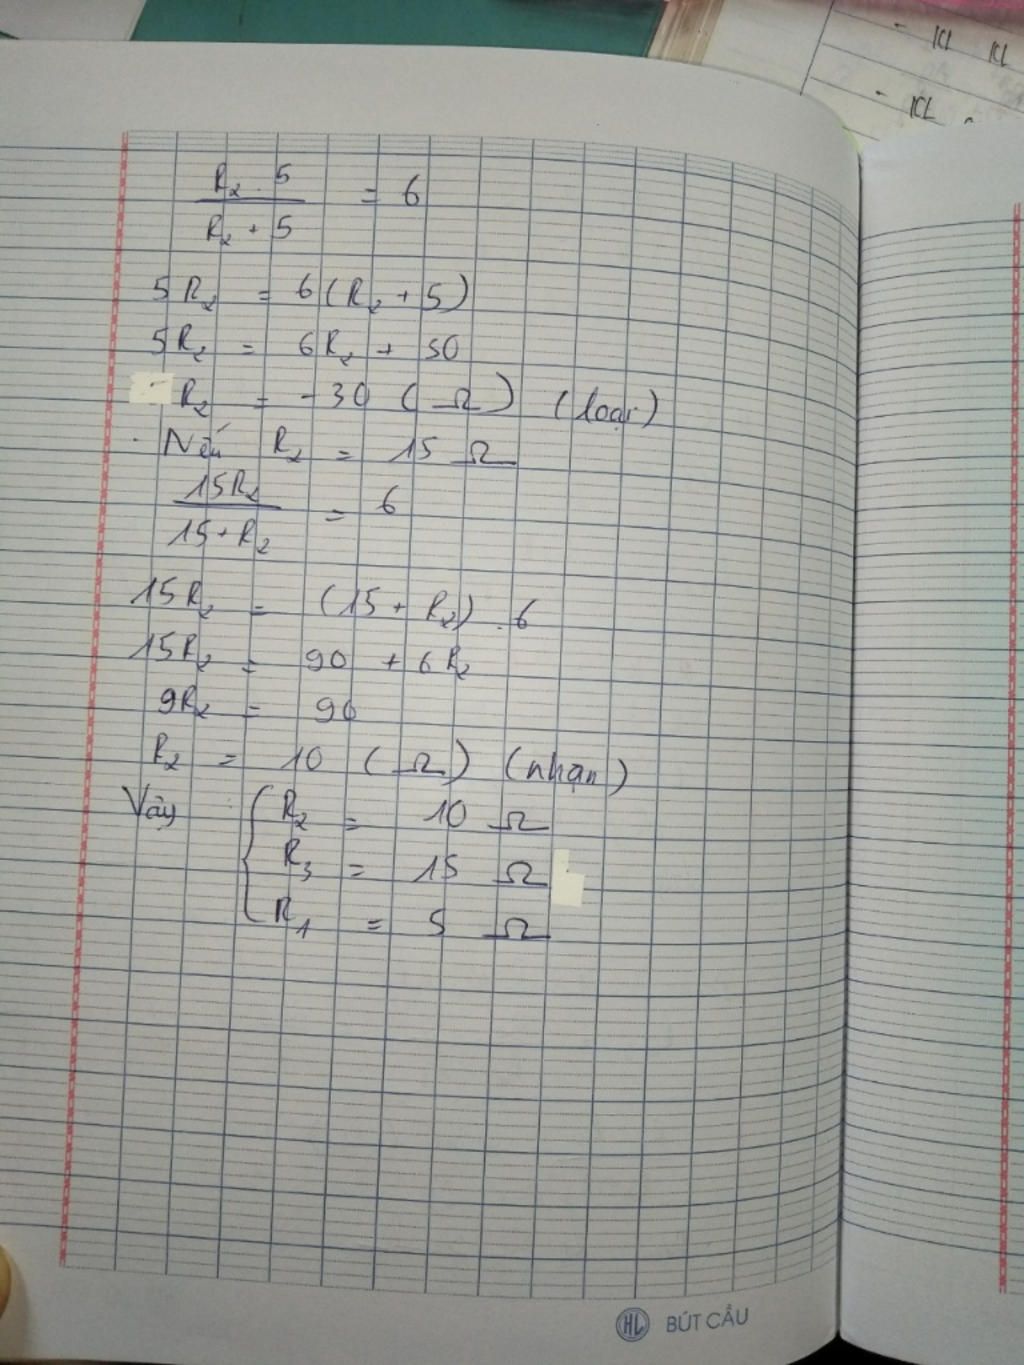 ICL ICL
- ICL
R₂ . 5 / R₂ + 5 = 6
5R₂ = 6(R₂ + 5)
5R₂ = 6R₂ + 30
R₂ = -30 (Ω) (loại)
Nếu R₂ = 15 Ω
15R₂ / 15 + R₂ = 6
15R₂ = (15 + R₂) . 6
15R₂ = 90 + 6R₂
9R₂ = 90
R₂ = 10 (Ω) (nhận)
Vậy { R₂ = 10 Ω
R₃ = 15 Ω
R₁ = 5 Ω
HL BÚT CẦU